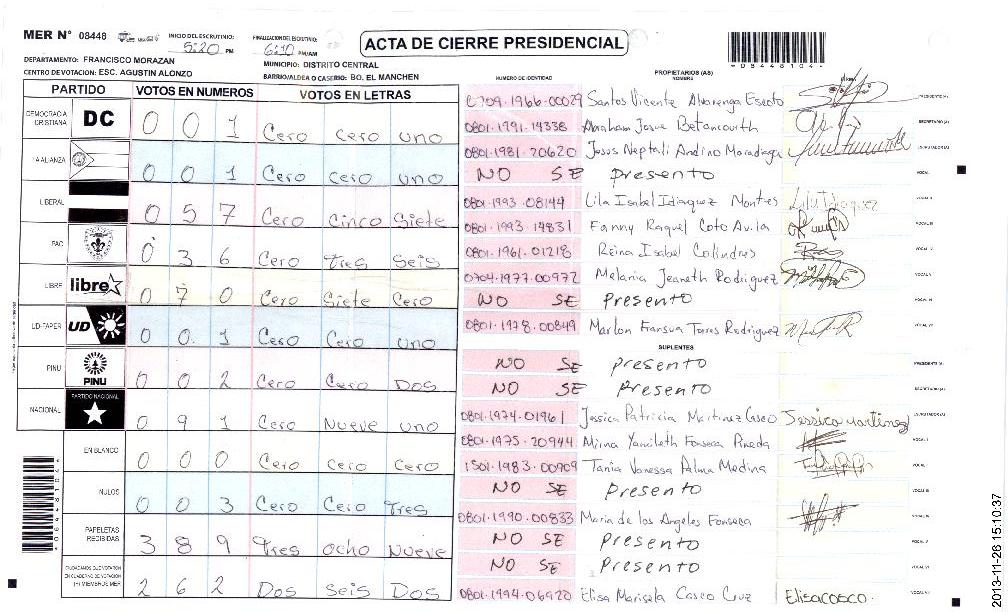 MER N° 08448
INICIO DEL ESCRUTINIO: 5:20 PM
FINALIZACION DEL ESCRUTINIO: 6:10 PM/AM
ACTA DE CIERRE PRESIDENCIAL
DEPARTAMENTO: FRANCISCO MORAZAN
MUNICIPIO: DISTRITO CENTRAL
CENTRO DE VOTACION: ESC. AGUSTIN ALONZO
BARRIO/ALDEA O CASERIO: BO. EL MANCHEN
PARTIDO VOTOS EN NUMEROS VOTOS EN LETRAS
DEMOCRACIA CRISTIANA DC 0 0 1 Cero cero uno
LA ALIANZA 0 0 1 Cero cero uno
LIBERAL 0 5 7 Cero Cinco Siete
PAC 0 3 6 Cero tres Seis
LIBRE libre 0 7 0 Cero Siete Cero
UD-FAPER UD 0 0 1 Cero Cero uno
PINU PINU 0 0 2 Cero Cero Dos
NACIONAL PARTIDO NACIONAL 0 9 1 Cero Nueve uno
EN BLANCO 0 0 0 Cero Cero Cero
NULOS 0 0 3 Cero Cero Tres
PAPELETAS RECIBIDAS 3 8 9 Tres ocho Nueve
CIUDADANOS QUE VOTARON EN CUADERNO DE VOTACION (+) MIEMBROS MER 2 6 2 Dos Seis Dos
NUMERO DE IDENTIDAD PROPIETARIOS (AS) NOMBRE FIRMA
0709-1966-00029 Santos Vicente Alvarenga Escoto PRESIDENTE (A)
0801-1991-14338 Abraham Josue Betancourth SECRETARIO (A)
0801-1981-20620 Jesus Neptali Andino Moradiaga ESCRUTADOR (A)
NO SE presento VOCAL I
0801-1993-08144 Lila Isabel Idiaquez Montes VOCAL II
0801-1993-14831 Fanny Raquel Coto Avila VOCAL III
0801-1961-01218 Reina Isabel Calindres VOCAL IV
0704-1977-00972 Melania Jeaneth Rodriguez VOCAL V
NO SE presento VOCAL VI
0801-1978-00849 Marlon Fransua Torres Rodriguez VOCAL VII
SUPLENTES
NO SE presento PRESIDENTE (A)
NO SE presento SECRETARIO (A)
0801-1974-01961 Jessica Patricia Martinez Casco Jessica martinez ESCRUTADOR (A)
0801-1975-20944 Mirna Yamileth Fonseca Pineda VOCAL I
1501-1983-00909 Tania Vanessa Palma Medina VOCAL II
NO SE presento VOCAL III
0801-1990-00833 Maria de los Angeles Fonseca VOCAL IV
NO SE presento VOCAL V
NO SE presento VOCAL VI
0801-1994-06920 Elisa Marisela Casco Cruz Elisa casco. VOCAL VII
2013-11-26 15:10:37